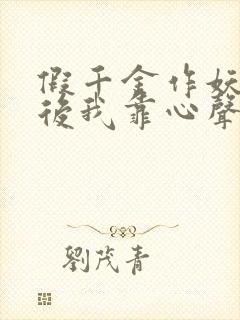 假千金作妖
後我靠心聲
劉茂青